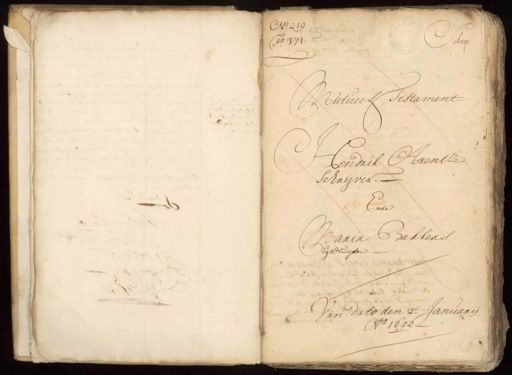 No. 219
fo. 171.
Mutueel Testament
Hendrik Arentse
Schryver
Ende
Maria Bakkers
Van dato den 2e January
Ao. 1692